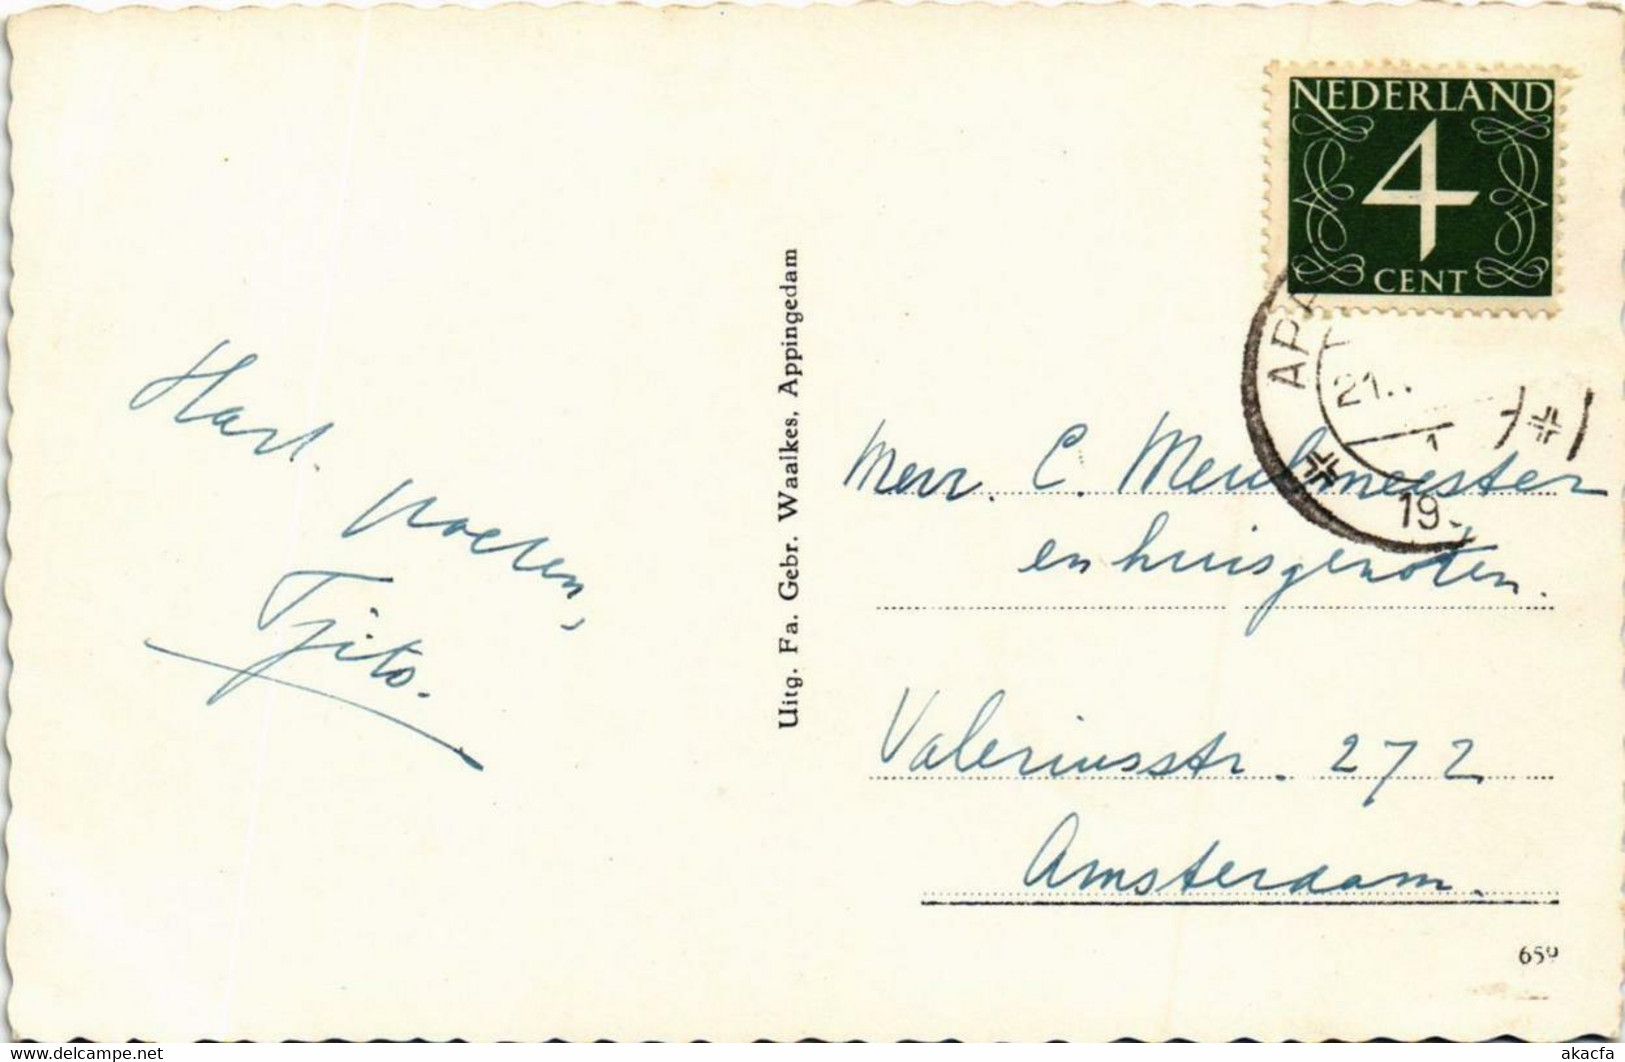 Hart. groeten,
Tjito.
Uitg. Fa. Gebr. Waalkes, Appingedam
NEDERLAND
4
CENT
AP
21.
1
19
C. Meulmeester
en huisgenoten.
Valeriusstr. 272
Amsterdam.
659
akacfa
delcampe.net